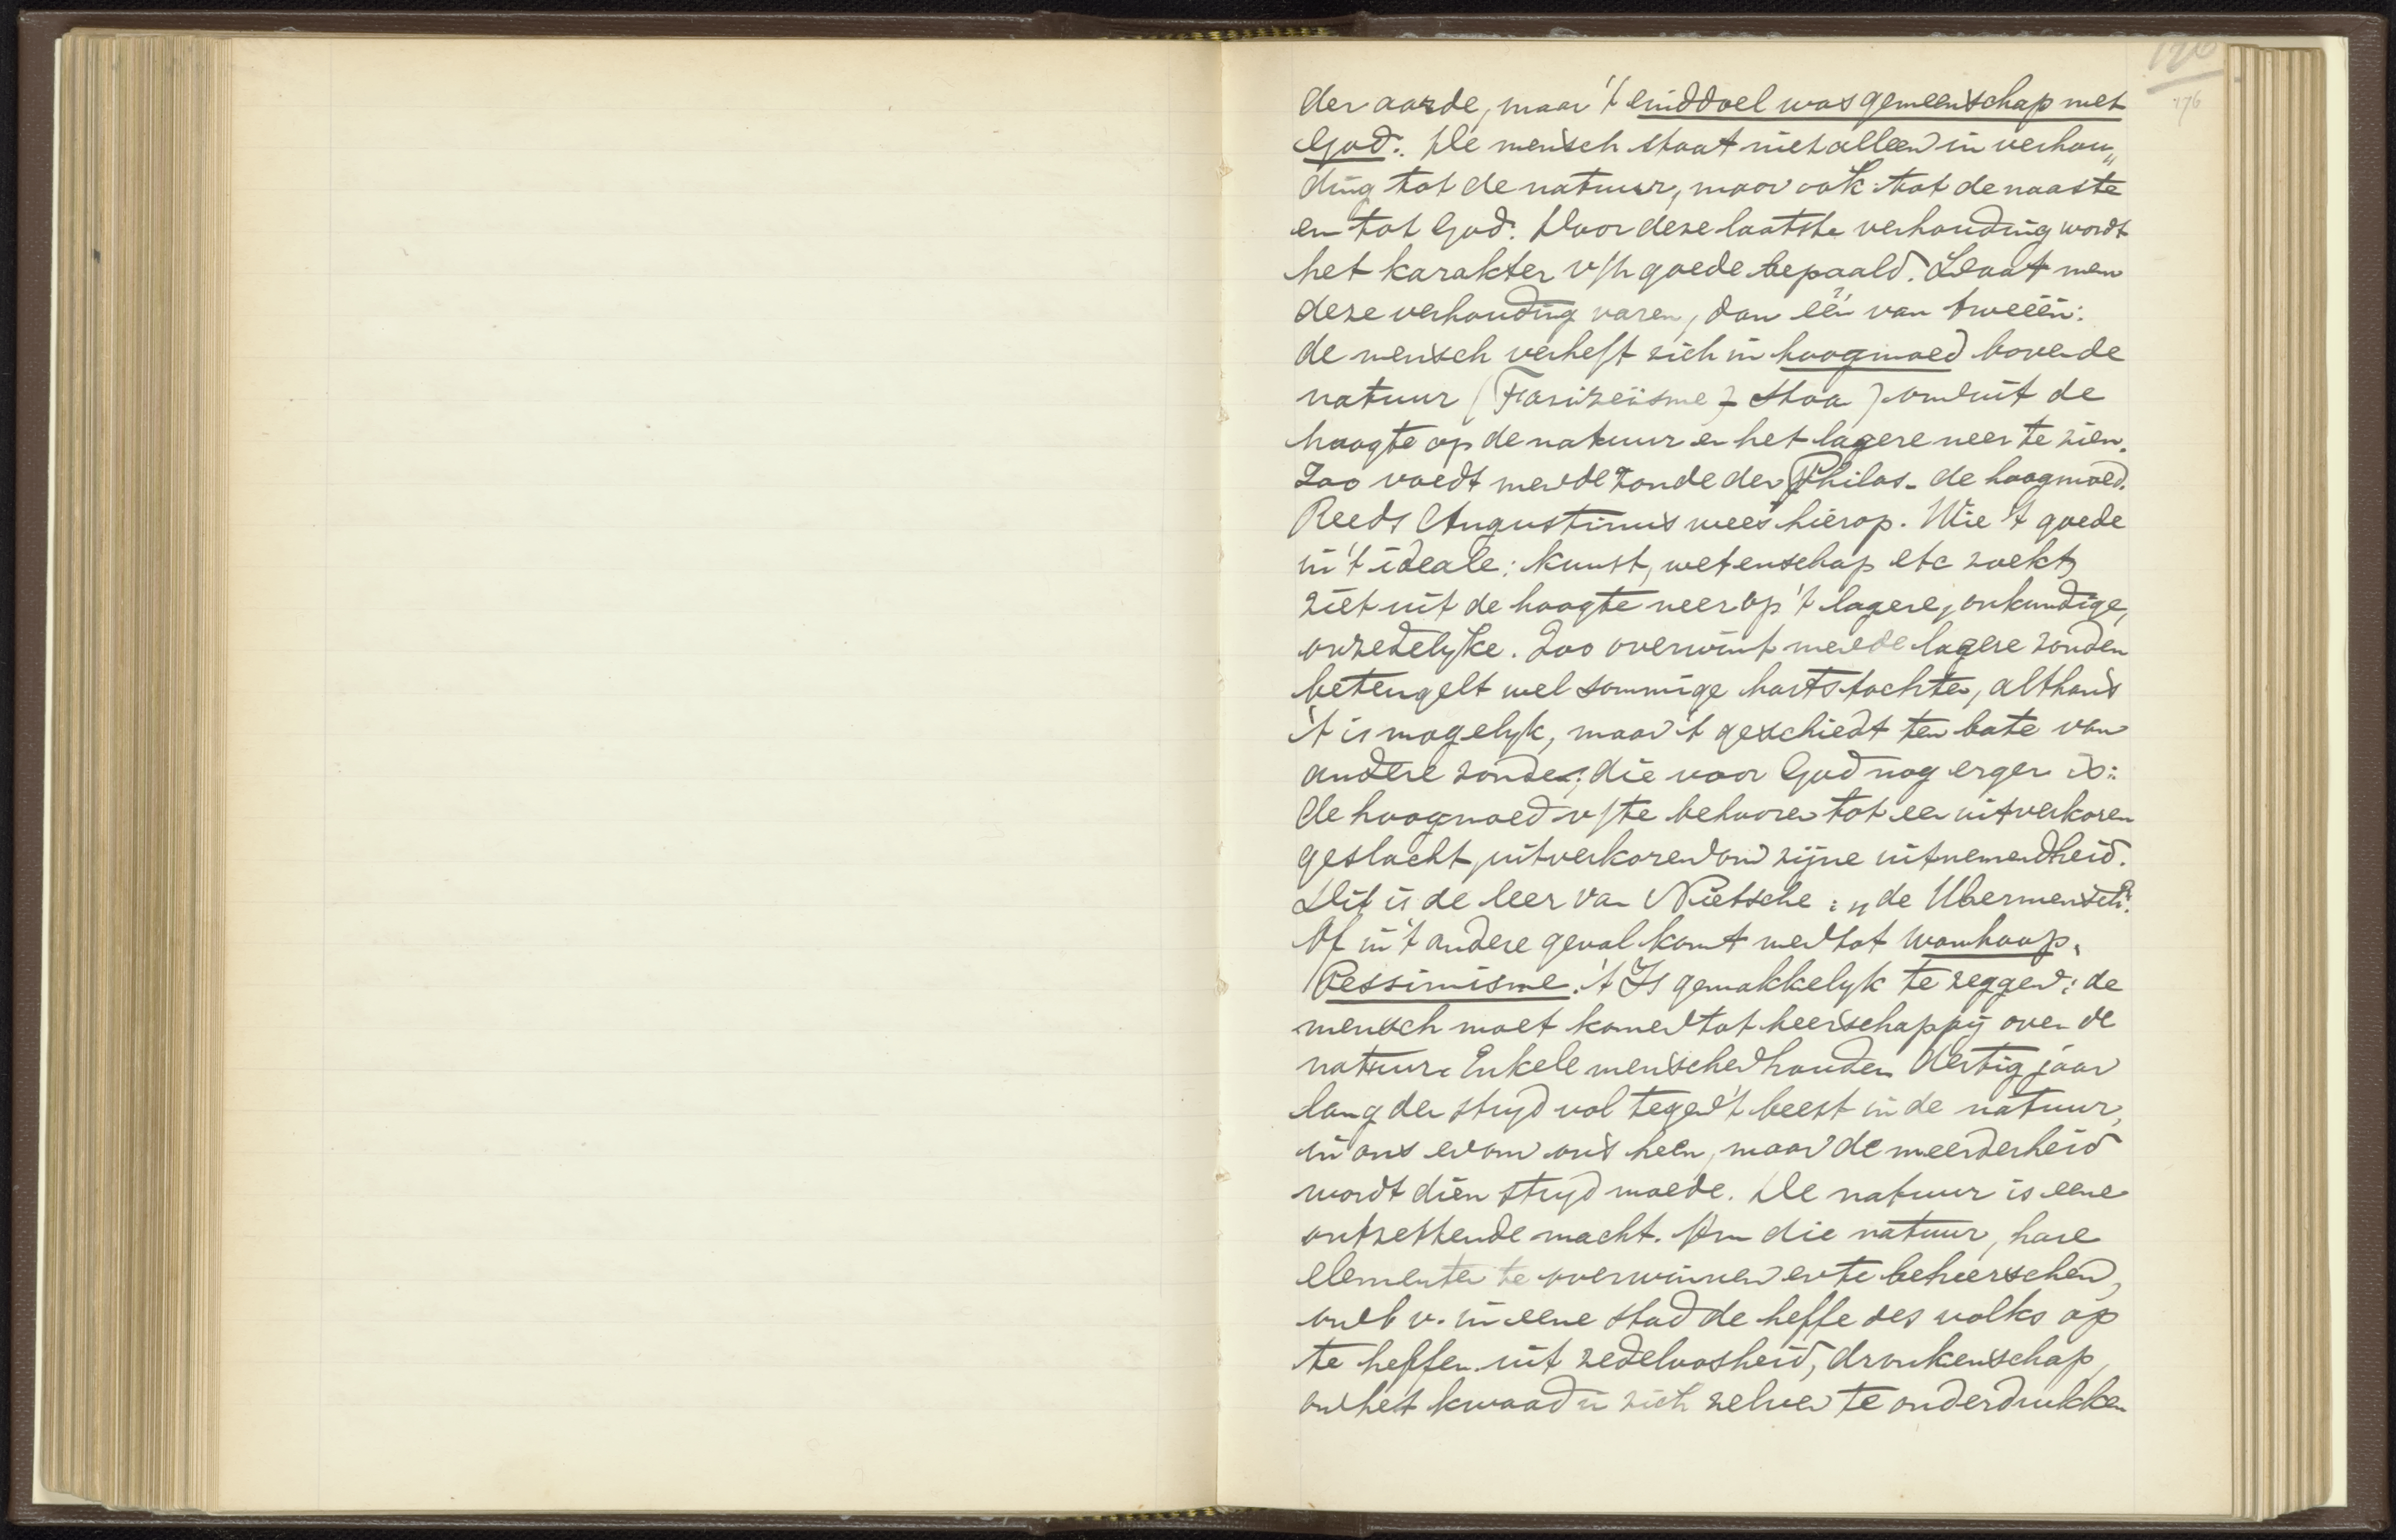 176
176
der aarde, maar 't einddoel was gemeenschap met
God. De mensch staat niet alleen in verhou„
ding tot de natuur, maar ook tot de naaste
en tot God. Door deze laatste verhouding wordt
het karakter v/h goede bepaald. Laat men
deze verhouding varen, dan één van tweeën:
de mensch verheft zich in hoogmoed boven de
natuur (Farizeïsme, Stoa) om uit de
hoogte op de natuur en het lagere neer te zien.
Zoo voedt men de zonde der Philos. de hoogmoed.
Reeds Augustinus wees hierop. Wie 't goede
in 't ideale: kunst, wetenschap etc zoekt,
ziet uit de hoogte neer op 't lagere, onkundige,
onzedelyke. Zoo overwint men de lagere zonden
beteugelt wel sommige hartstochten, althans
't is mogelyk, maar 't geschiedt ten bate van
andere zonde, die voor God nog erger is:
de hoogmoed v/te behooren tot een uitverkoren
geslacht, uitverkoren om zijne uitnemendheid.
Dit is de leer van Nietsche: „de Ubermensch".
Of in 't andere geval komt men tot wanhoop,
Pessimisme. 't Is gemakkelyk te zeggen: de
mensch moet komen tot heerschappij over de
natuur. Enkele menschen houden dertig jaar
lang den stryd vol tegen 't beest in de natuur,
in ons en om ons heen, maar de meerderheid
wordt dien stryd moede. De natuur is eene
ontzettende macht. Om die natuur, hare
elementen te overwinnen en te beheerschen,
om b v. in eene stad de heffe des volks op
te heffen uit zedeloosheid, dronkenschap,
om het kwaad in zich zelven te onderdrukken